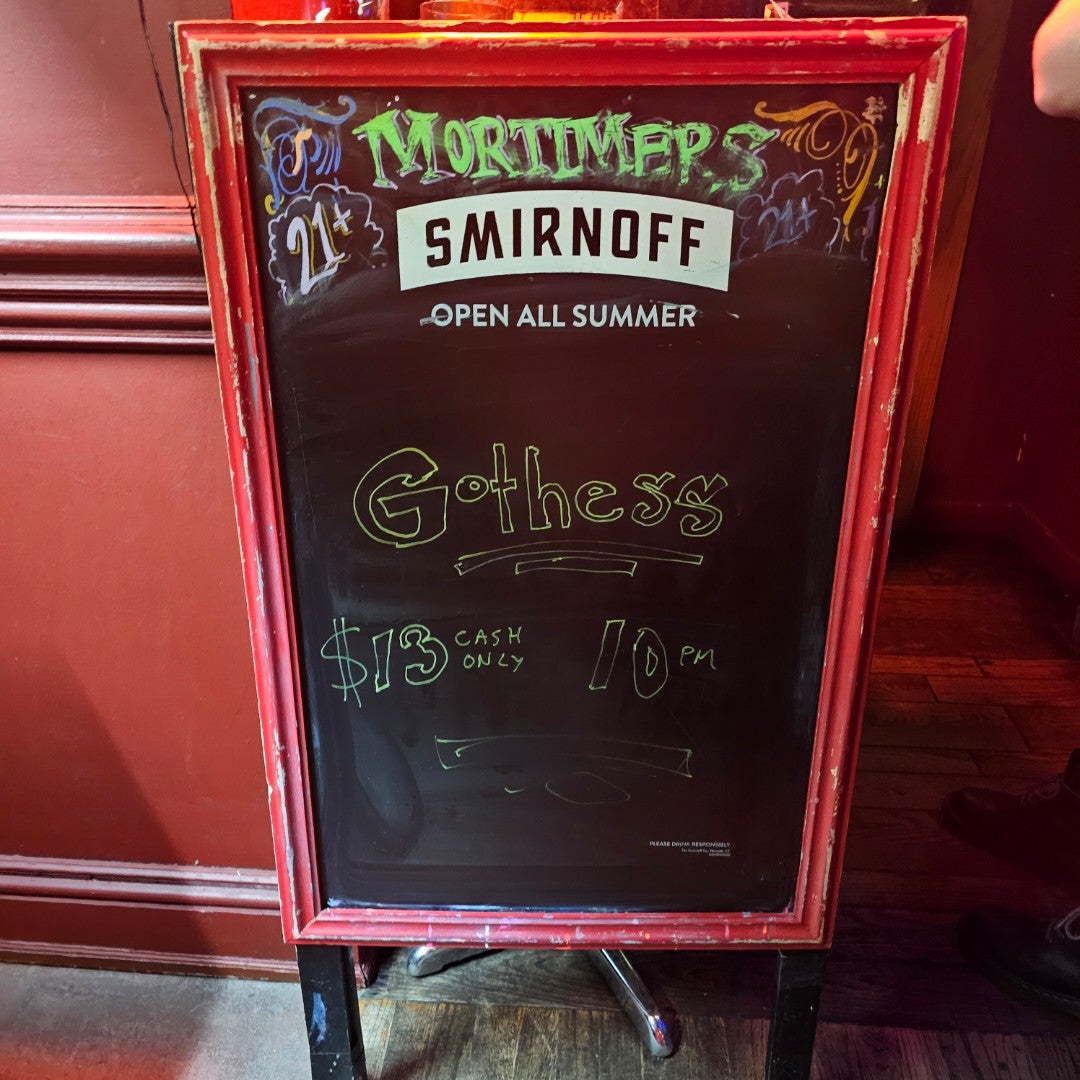 MORTIMERS
21+
21+
SMIRNOFF
OPEN ALL SUMMER
Gothess
$13 CASH ONLY 10 PM
PLEASE DRINK RESPONSIBLY.